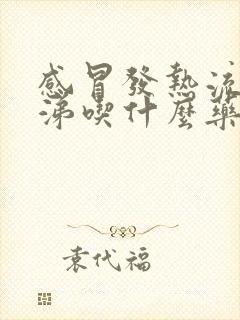 感冒發熱流
涕喫什麼藥
袁代福